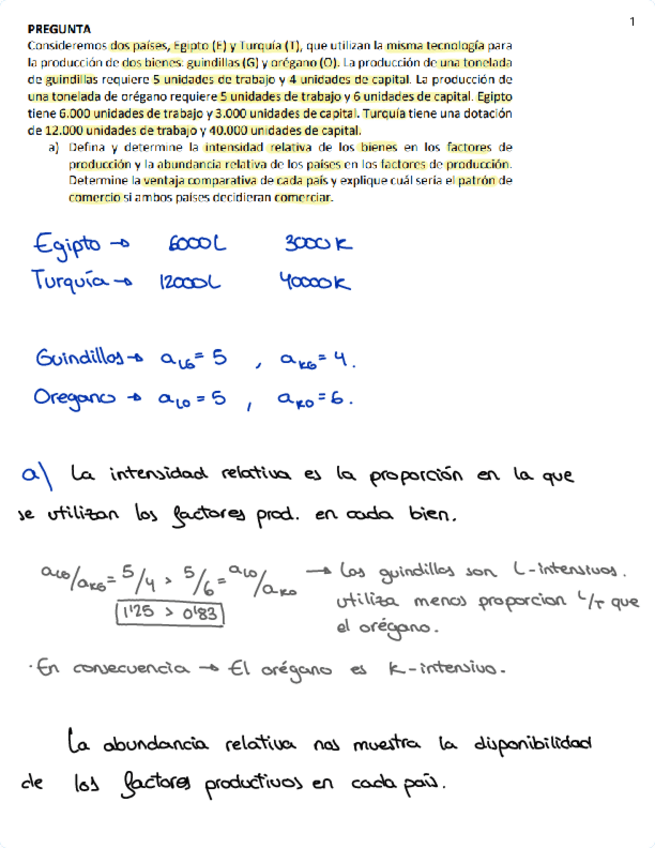 1
PREGUNTA
Consideremos dos países, Egipto (E) y Turquía (T), que utilizan la misma tecnología para
la producción de dos bienes: guindillas (G) y orégano (O). La producción de una tonelada
de guindillas requiere 5 unidades de trabajo y 4 unidades de capital. La producción de
una tonelada de orégano requiere 5 unidades de trabajo y 6 unidades de capital. Egipto
tiene 6.000 unidades de trabajo y 3.000 unidades de capital. Turquía tiene una dotación
de 12.000 unidades de trabajo y 40.000 unidades de capital.
a) Defina y determine la intensidad relativa de los bienes en los factores de
producción y la abundancia relativa de los países en los factores de producción.
Determine la ventaja comparativa de cada país y explique cuál sería el patrón de
comercio si ambos países decidieran comerciar.
Egipto → 6000L 3000K
Turquía → 12000L 40000K
Guindillas → aLG = 5 , aKG = 4.
Oregano → aLO = 5 , aKO = 6.
a) La intensidad relativa es la proporción en la que
se utilizan los factores prod. en cada bien.
aLG/aKG = 5/4 > 5/6 = aLO/aKO → Las guindillas son L-intensivas.
1'25 > 0'83 utiliza menos proporcion L/T que
el orégano.
· En consecuencia → El orégano es K-intensivo.
La abundancia relativa nos muestra la disponibilidad
de los factores productivos en cada país.